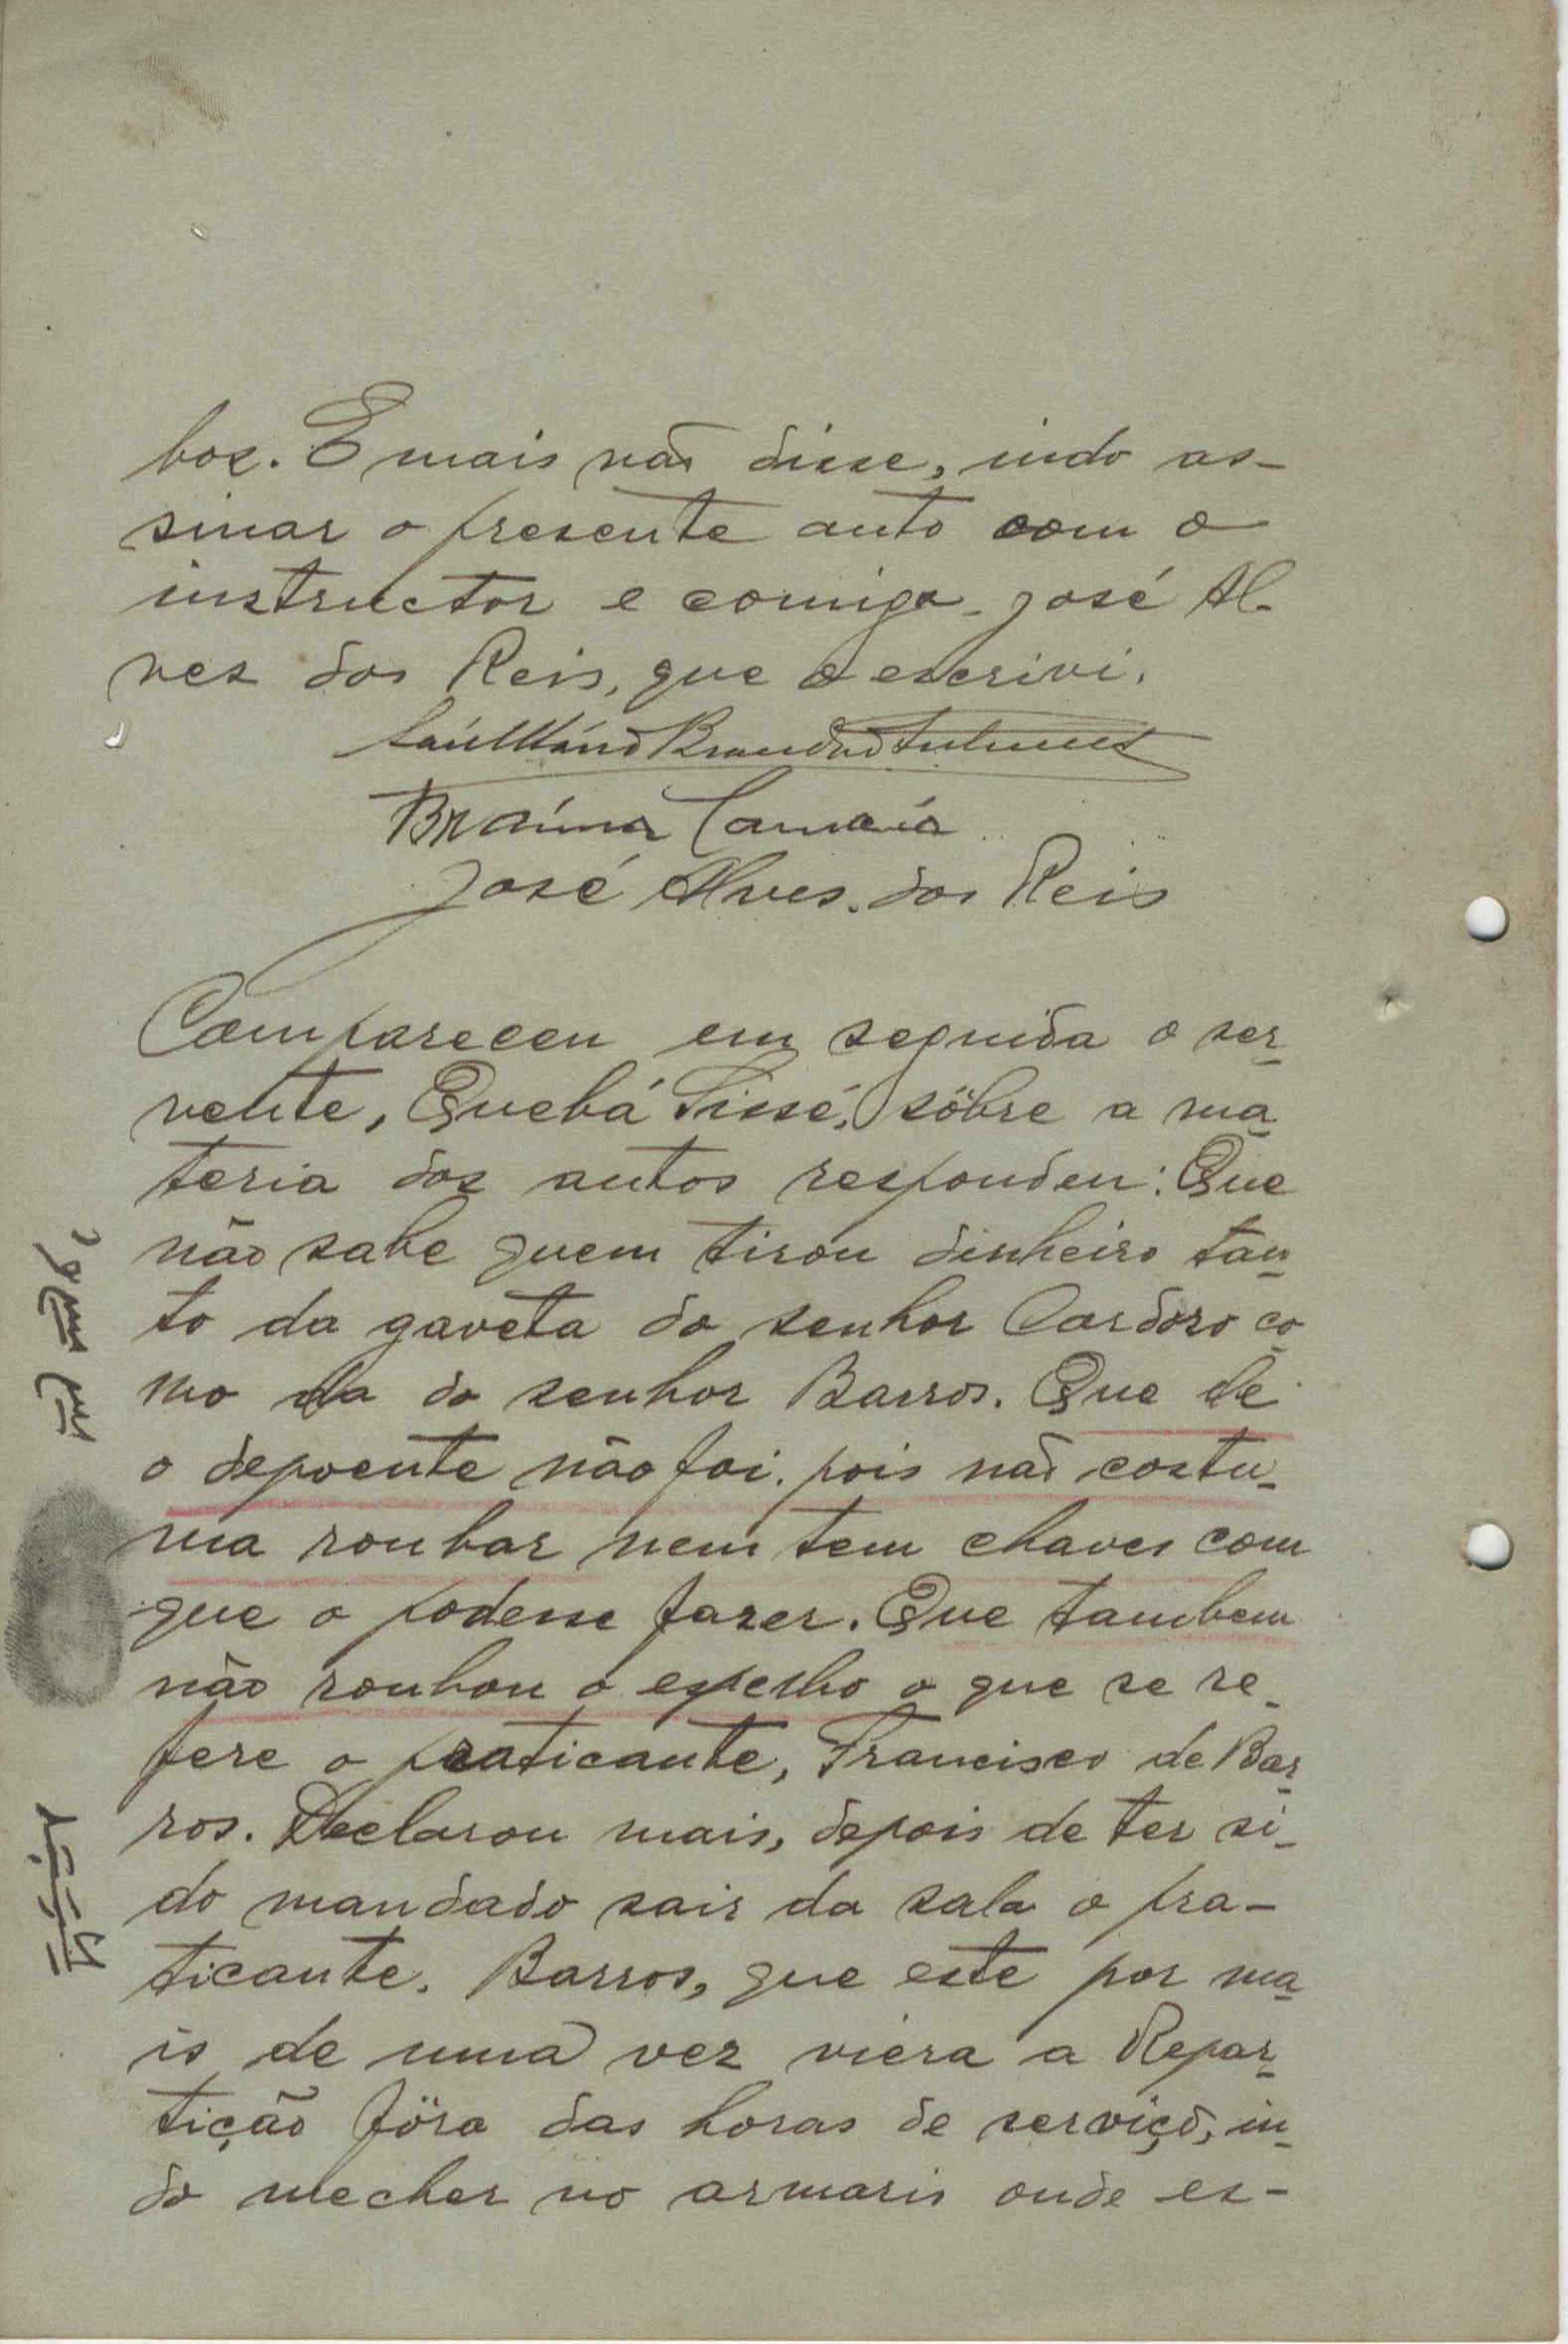 bos. E mais não disse, indo as-
sinar o presente auto com o
instructor e comigo José Al-
ves dos Reis, que o escrivi.
Brandão Antunes
Braima Camará
José Alves dos Reis
Compareceu em seguida o ser-
vente, Quebá Sissé, sôbre a ma-
teria dos autos respondeu: Que
não sabe quem tirou dinheiro tan-
to da gaveta do senhor Cardoso co-
mo da do senhor Barros. Que de
o depoente não foi. pois não costu-
ma roubar nem tem chaves com
que o podesse fazer. Que tambem
não roubou o espelho o que se re-
fere o praticante, Francisco de Bar-
ros. Declarou mais, depois de ter si-
do mandado sair da sala o pra-
ticante. Barros, que este por ma-
is de uma vez viera a Repar-
tição fóra das horas de serviço, in-
do mecher no armario onde es-